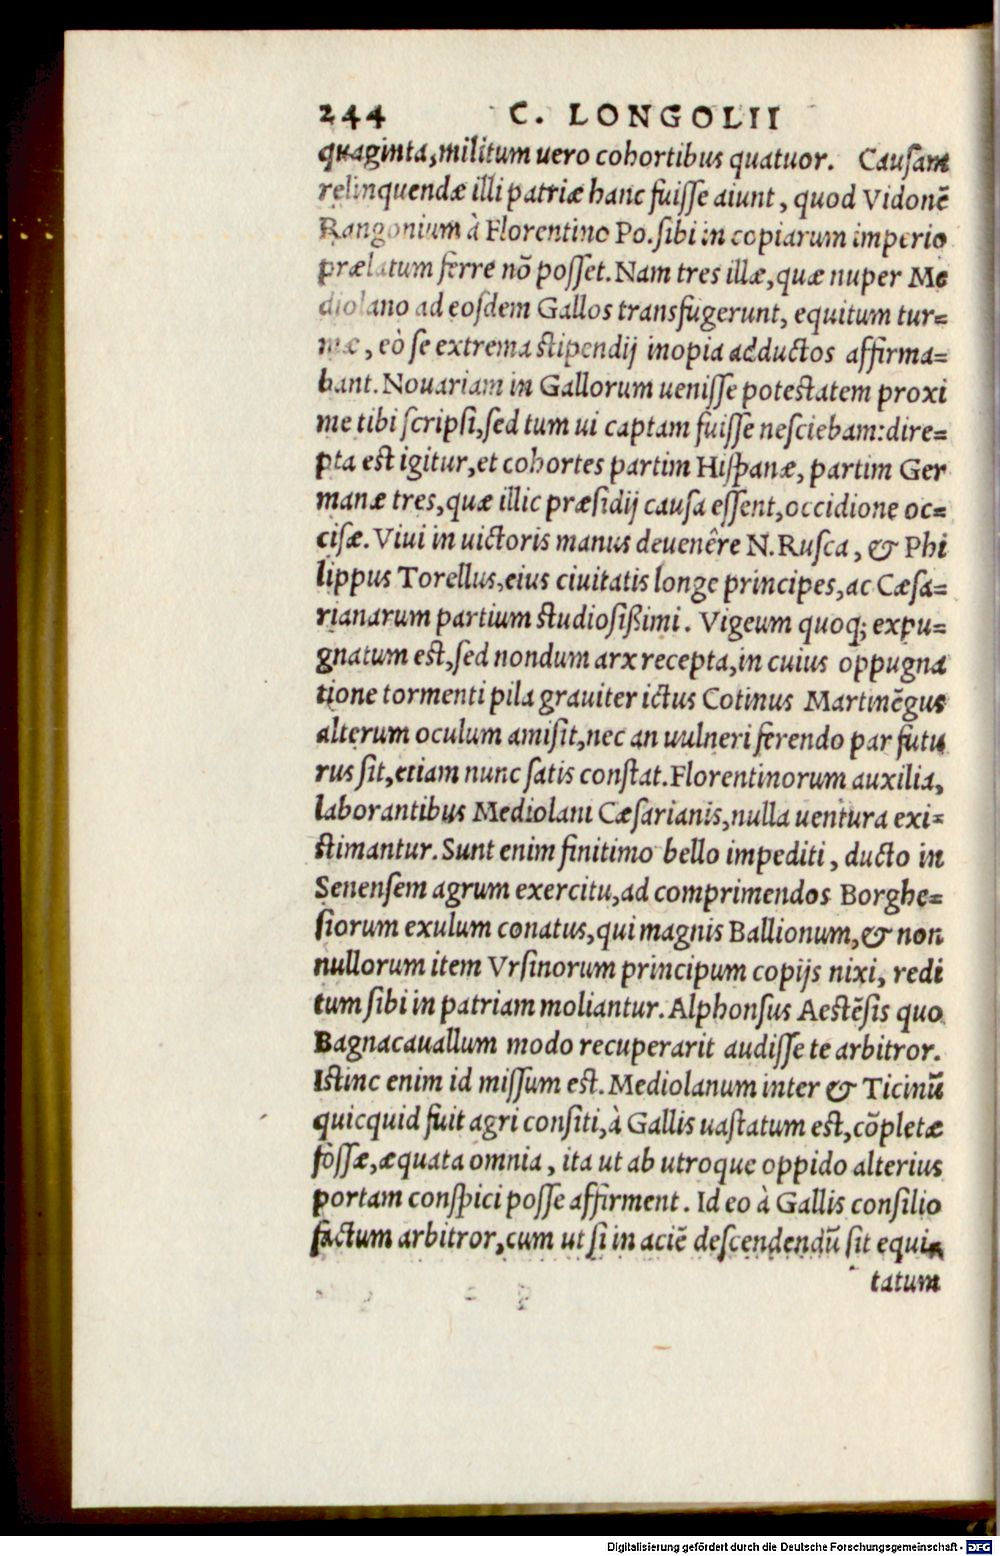 244 C. LONGOLII
quaginta, militum uero cohortibus quatuor. Causam
relinquendæ illi patriæ hanc fuisse aiunt, quod Vidonē
Rangonium à Florentino Po. sibi in copiarum imperio
prælatum ferre nō posset. Nam tres illæ, quæ nuper Me
diolano ad eosdem Gallos transfugerunt, equitum tur=
mæ, eò se extrema stipendij inopia adductos affirma=
bant. Nouariam in Gallorum uenisse potestatem proxi
me tibi scripsi, sed tum ui captam fuisse nesciebam: dire=
pta est igitur, et cohortes partim Hispanæ, partim Ger
manæ tres, quæ illic præsidij causa essent, occidione oc=
cisæ. Viui in uictoris manus deuenêre N. Rusca, & Phi
lippus Torellus, eius ciuitatis longe principes, ac Cæsa=
rianarum partium studiosißimi. Vigeum quoq; expu=
gnatum est, sed nondum arx recepta, in cuius oppugna
tione tormenti pila grauiter ictus Cotinus Martinēgus
alterum oculum amisit, nec an uulneri ferendo par futu
rus sit, etiam nunc satis constat. Florentinorum auxilia,
laborantibus Mediolani Cæsarianis, nulla uentura exi=
stimantur. Sunt enim finitimo bello impediti, ducto in
Senensem agrum exercitu, ad comprimendos Borghe=
siorum exulum conatus, qui magnis Ballionum, & non
nullorum item Vrsinorum principum copijs nixi, redi
tum sibi in patriam moliantur. Alphonsus Aestēsis quo
Bagnacauallum modo recuperarit audisse te arbitror.
Istinc enim id missum est. Mediolanum inter & Ticinū
quicquid fuit agri consiti, à Gallis uastatum est, cōpletæ
fossæ, æquata omnia, ita ut ab utroque oppido alterius
portam conspici posse affirment. Id eo à Gallis consilio
factum arbitror, cum ut si in aciē descendendū sit equi=
tatum
Digitalisierung gefördert durch die Deutsche Forschungsgemeinschaft - DFG